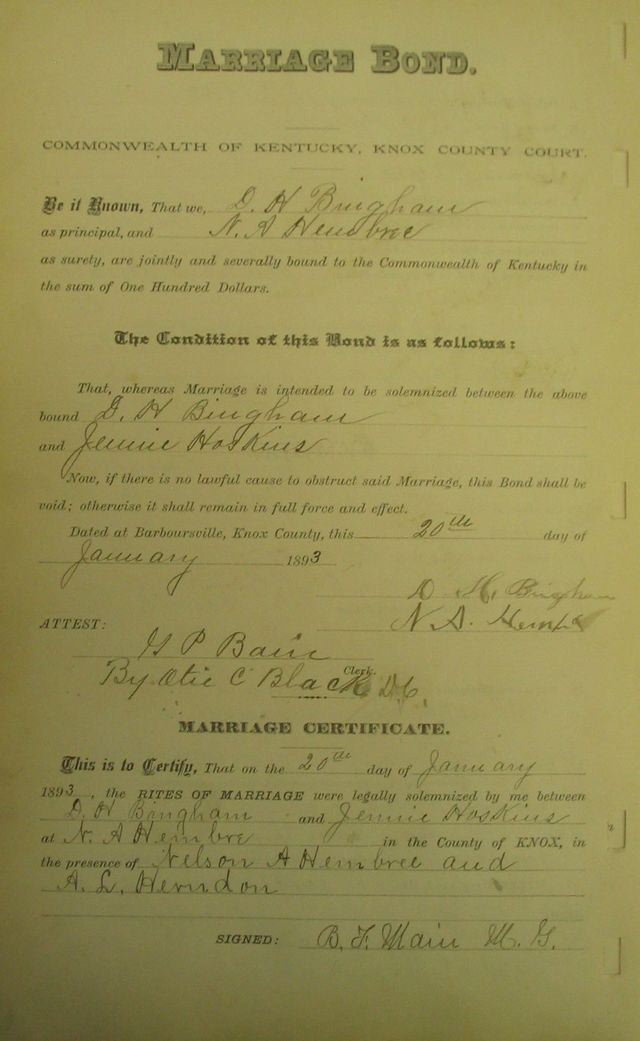 MARRIAGE BOND.
COMMONWEALTH OF KENTUCKY, KNOX COUNTY COURT.
Be it Known, That we, D. H Bingham
as principal, and N. A Hembree
as surety, are jointly and severally bound to the Commonwealth of Kentucky in
the sum of One Hundred Dollars.
The Condition of this Bond is as follows:
That, whereas Marriage is intended to be solemnized between the above
bound D. H Bingham
and Jennie Hoskins
Now, if there is no lawful cause to obstruct said Marriage, this Bond shall be
void; otherwise it shall remain in full force and effect.
Dated at Barboursville, Knox County, this 20th day of
January 1893
D. H. Bingham
N. A. Hembree
ATTEST:
G P Bain
Clerk.
By Otie C Black D.C.
MARRIAGE CERTIFICATE.
This is to Certify, That on the 20th day of January
1893, the RITES OF MARRIAGE were legally solemnized by me between
D. H Bingham and Jennie Hoskins
at N. A Hembre in the County of KNOX, in
the presence of Nelson A Hembree and
A. L. Herndon
SIGNED: B. F. Main M. G.